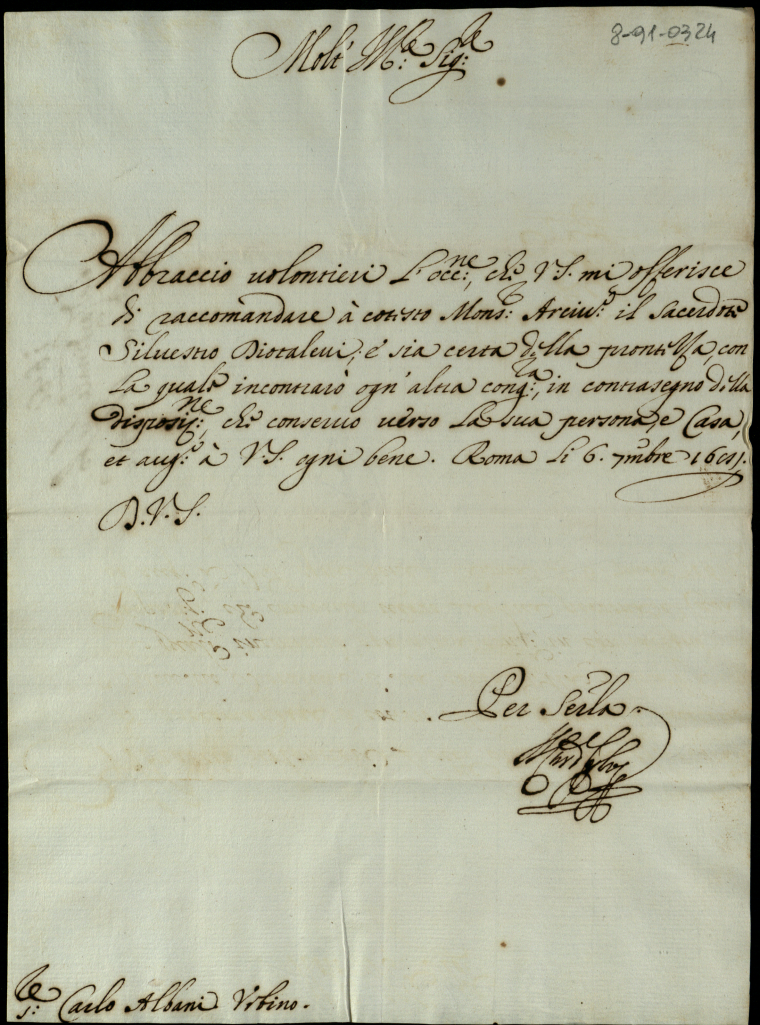 8-91-0324
Molt' Ill.re Sig.re
Abbraccio volontieri l'occ.ne, che V.S. mi offerisce
di raccomandare à cotesto Mons.r Arciv.o il Sacerdote
Silvestro Diotalevi; e sia certa della prontezza, con
la quale incontrarò ogn'altra cong.ra, in contrasegno della
disposiz.ne, che conservo verso la sua persona, e Casa,
et aug.o à V.S. ogni bene. Roma li 6. 7mbre
D.V.S.
Per Ser.la
S.r Carlo Albani Urbino.